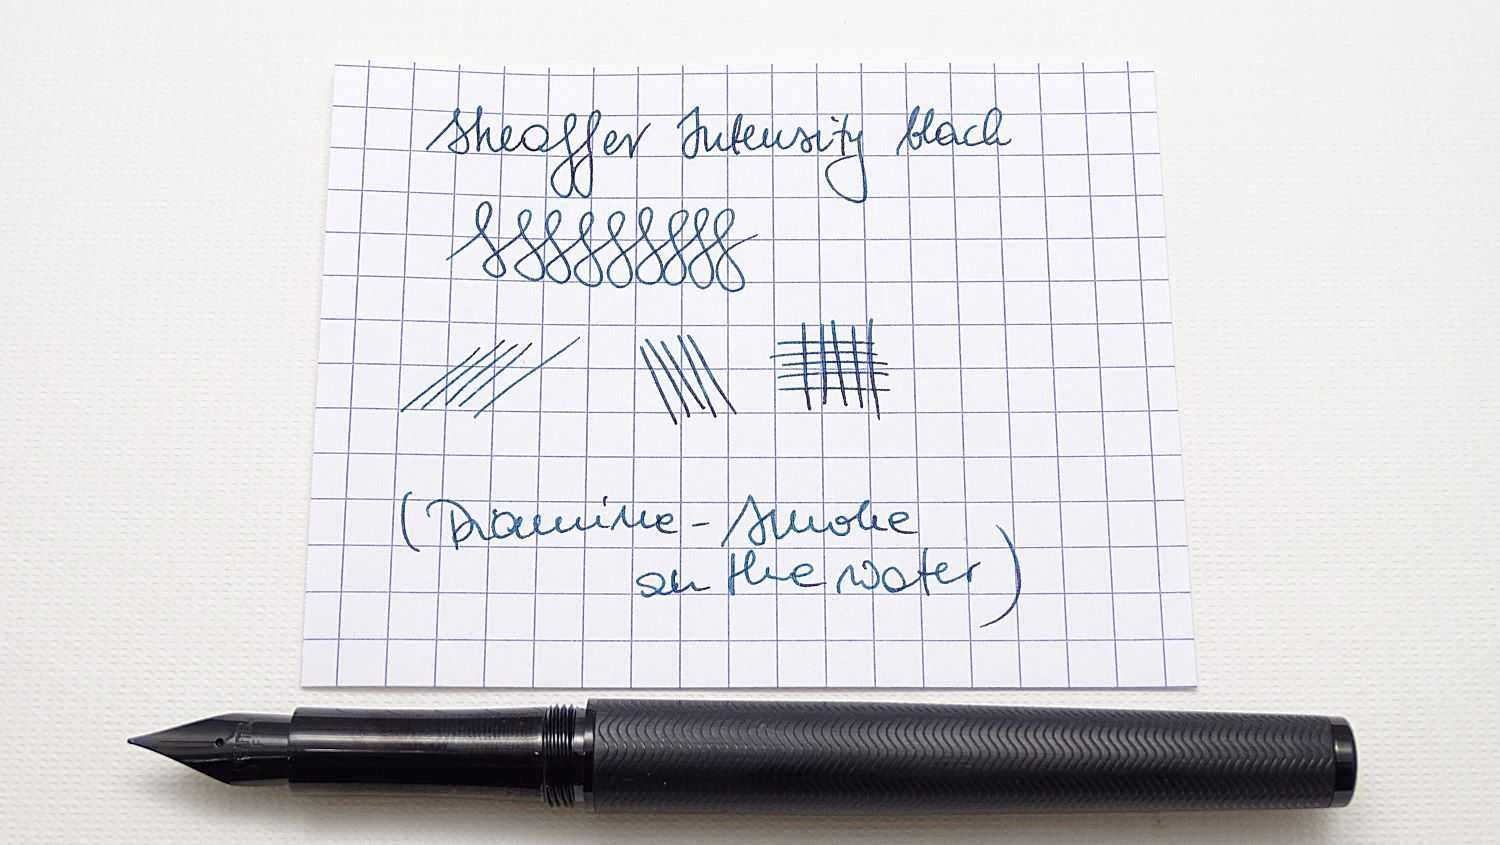 Sheaffer Intensity black
(Diamine - Smoke
on the water)
F